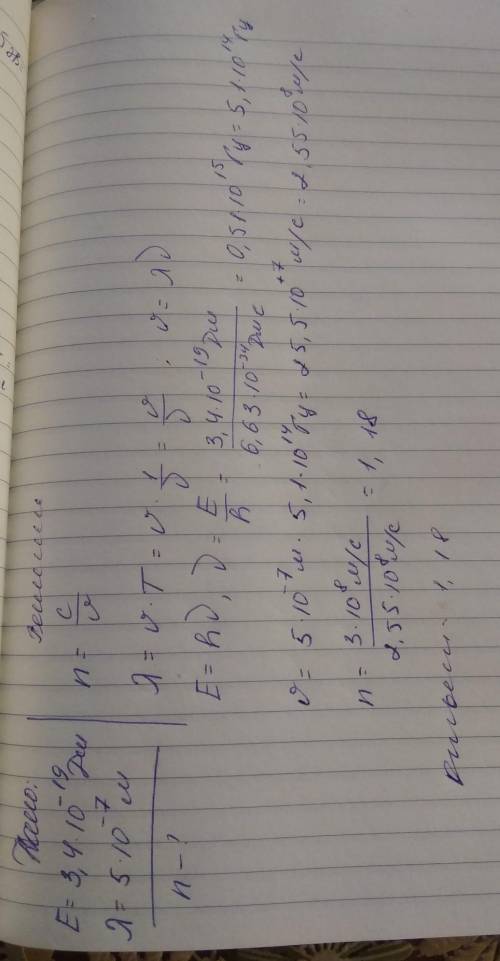 Дано:
E = 3,4·10⁻¹⁹ Дж
λ = 5·10⁻⁷ м
n - ?
Решение
n = c/υ
λ = υ·T = υ·1/ν = υ/ν ; υ = λν
E = hν, ν = E/h = 3,4·10⁻¹⁹ Дж / 6,63·10⁻³⁴ Дж с = 0,51·10¹⁵ Гц = 5,1·10¹⁴ Гц
υ = 5·10⁻⁷ м · 5,1·10¹⁴ Гц = 25,5·10⁺⁷ м/с = 2,55·10⁸ м/с
n = 3·10⁸ м/с / 2,55·10⁸ м/с = 1,18
Ответ: 1,18